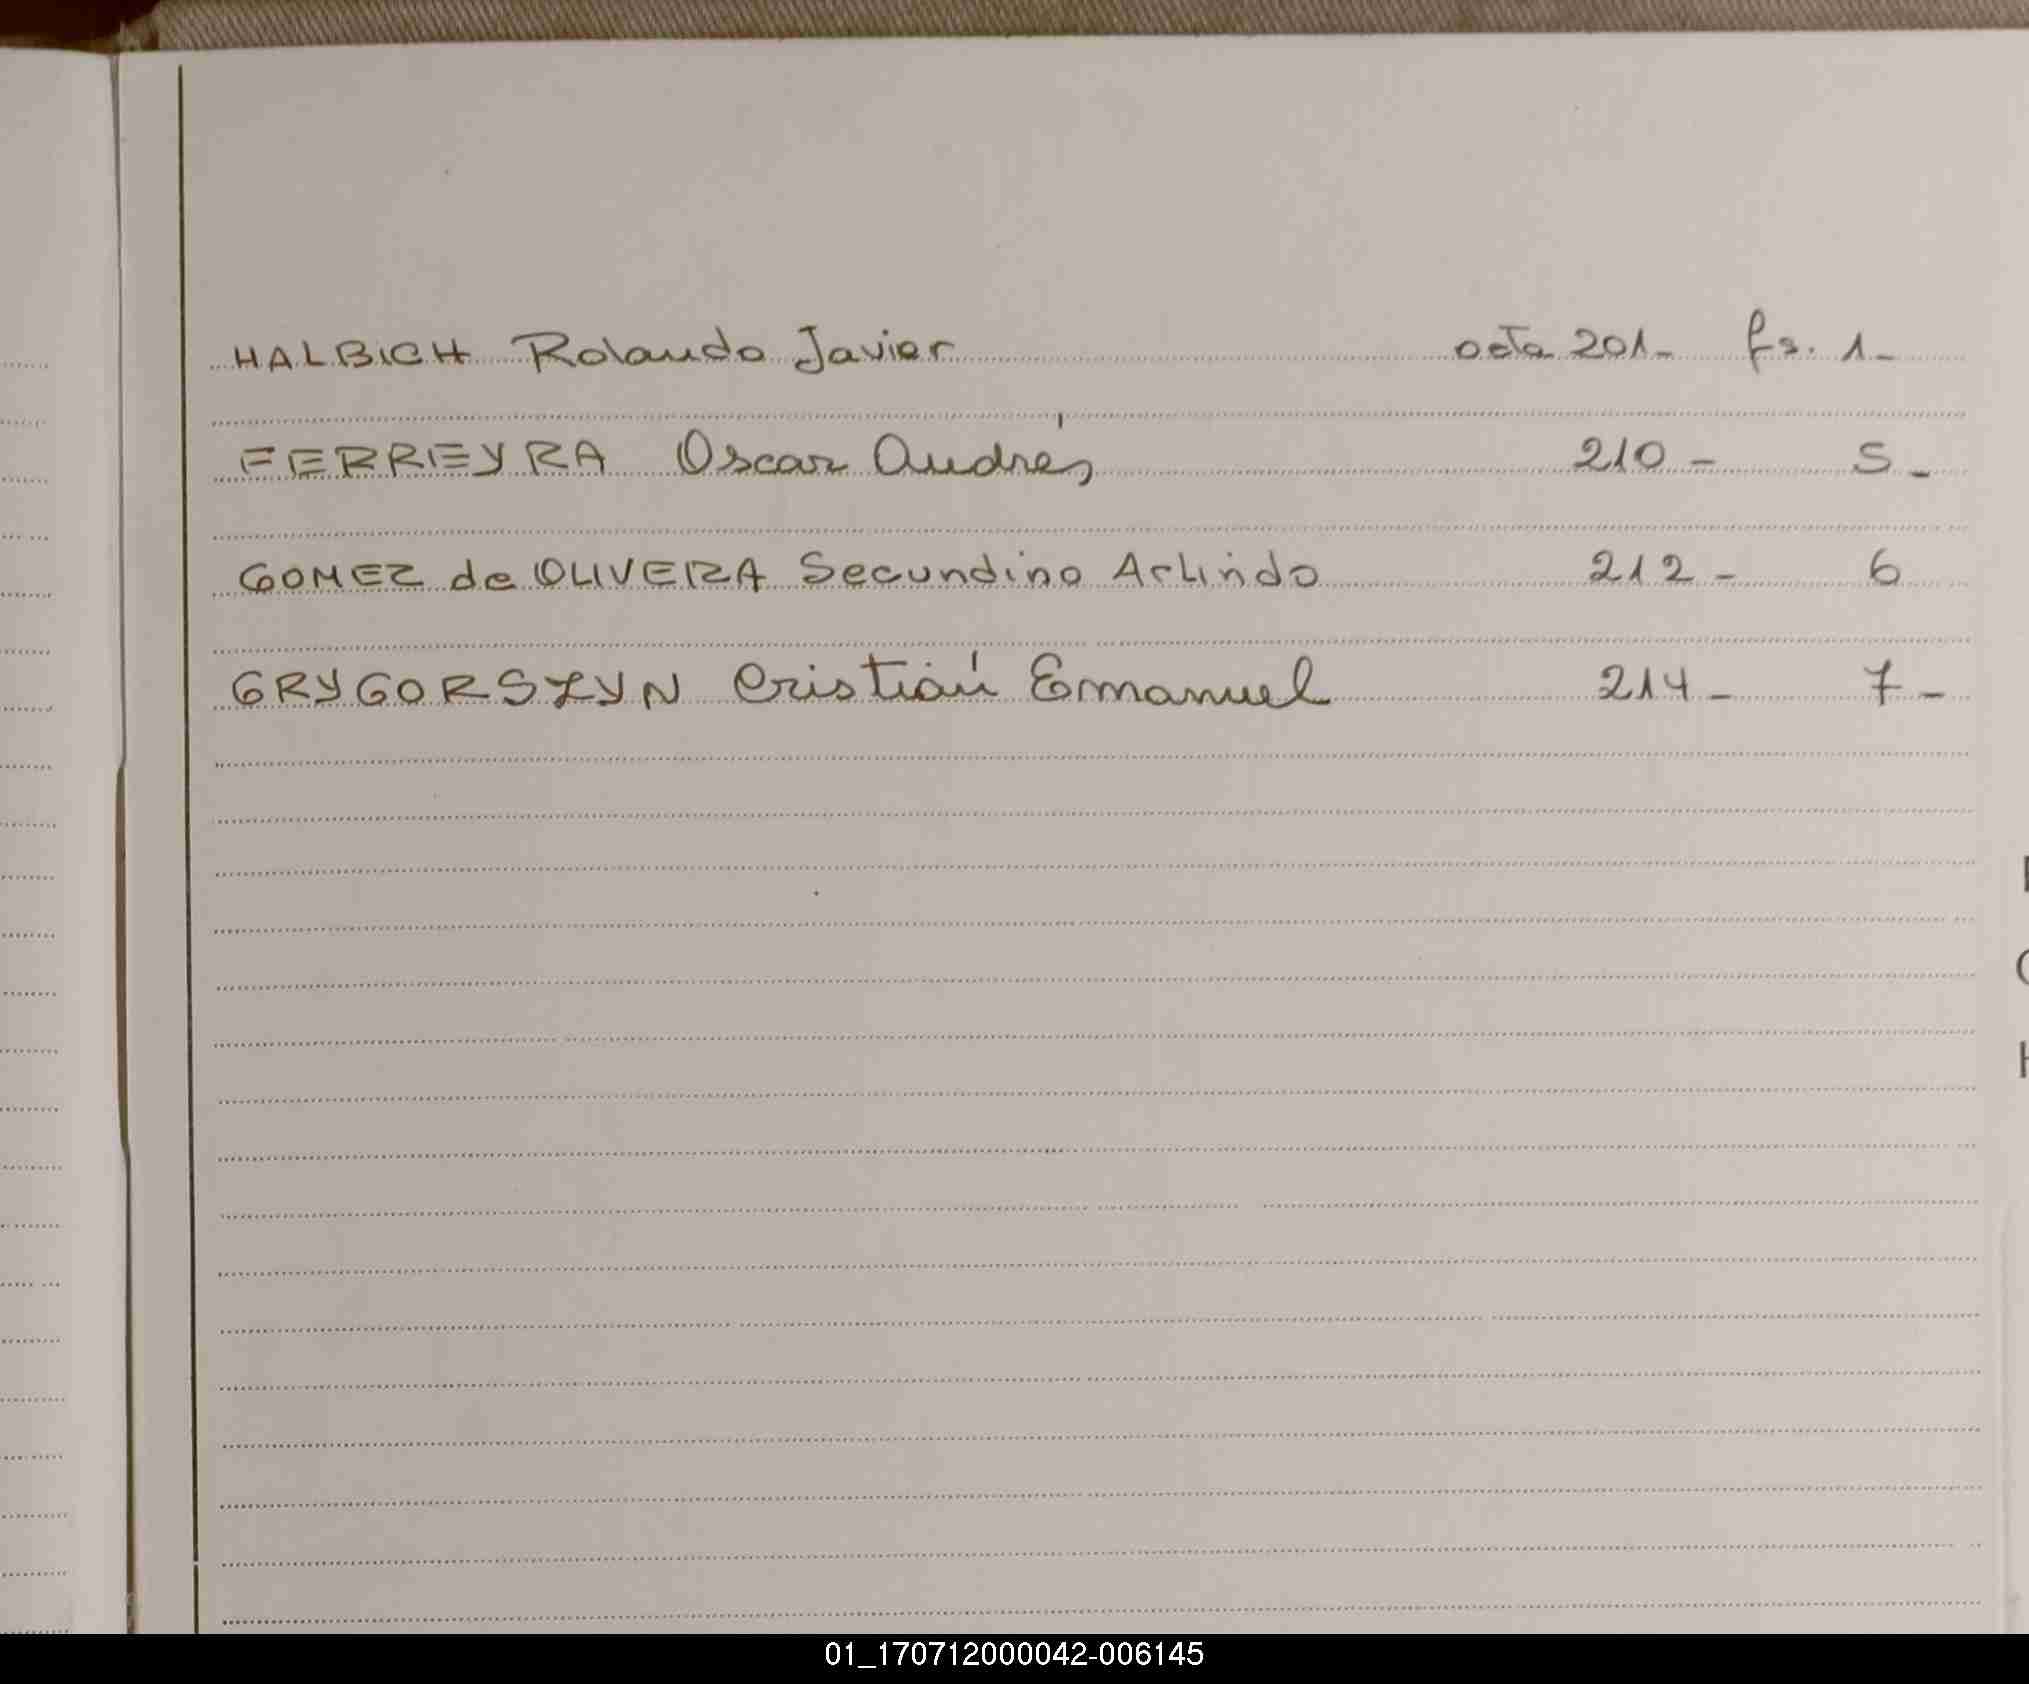 HALBICH Rolando Javier acta 201- fs. 1-
FERREYRA Oscar Andrés 210 - 5 -
GOMEZ de OLIVERA Secundino Arlindo 212 - 6
GRYGORSZYN Cristián Emmanuel 214 - 7 -
01_170712000042-006145